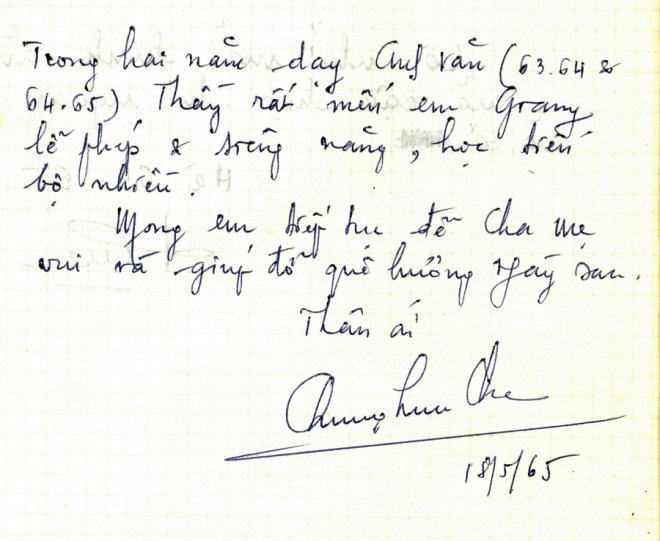 Trong hai năm dạy Anh văn (63.64 &
64.65) Thầy rất mến em Giang,
lễ phép & siêng năng, học tiến
bộ nhiều.
Mong em tiếp tục để Cha mẹ
vui và giúp đỡ quê hương ngày sau.
Thân ái
Chung Hữu
18/5/65